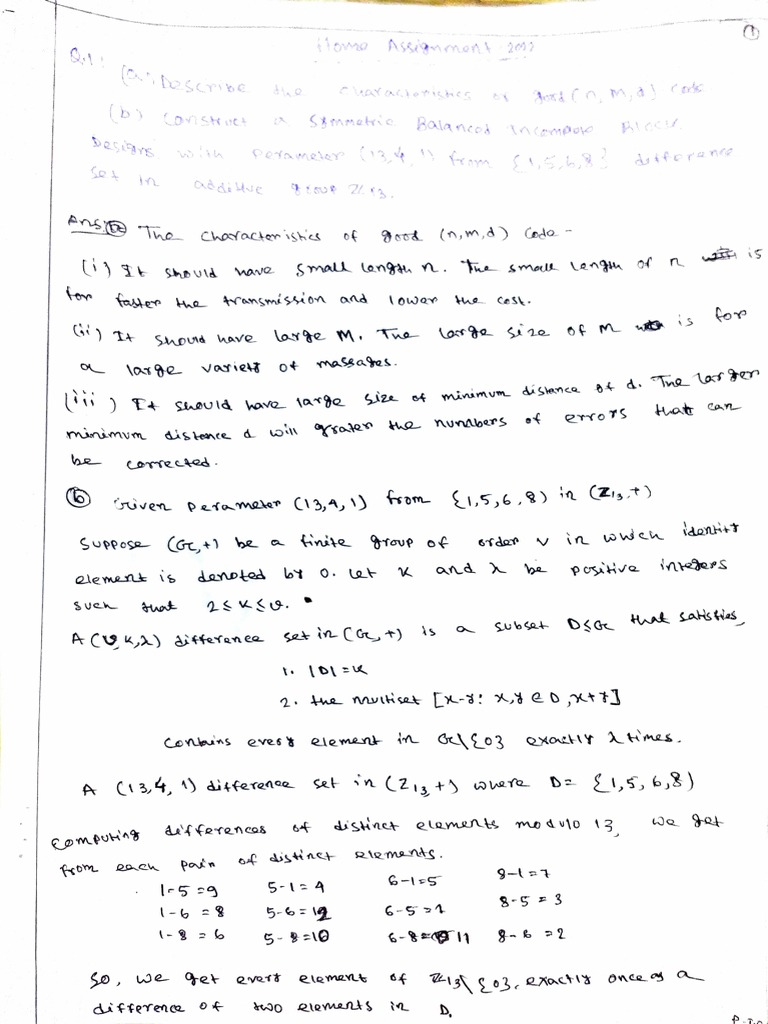 1
Home Assignment 2022
Q.1: (a) Describe the characteristics of good (n, m, d) code
(b) Construct a Symmetric Balanced Incomplete Block
Designs with Perameter (13, 4, 1) from {1,5,6,8} difference
set in additive group Z13.
Ans (a) The characteristics of good (n,m,d) Code -
(i) It should have small length n. The small length of n is
for faster the transmission and lower the cost.
(ii) It should have large M. The large size of M is for
a large variety of massages.
(iii) It should have large size of minimum distance of d. The larger
minimum distance d will grater the numbers of errors that can
be corrected.
(b) Given perameter (13,4,1) from {1,5,6,8) in (Z13,+)
Suppose (G,+) be a finite group of order v in which identity
element is denoted by 0. Let K and λ be positive integers
such that 2≤K≤v.
A (v,K,λ) difference set in (G,+) is a subset D≤G that satisfies,
1. |D|=K
2. the multiset [x-y: x,y ∈ D, x≠y]
Contains every element in G\{0} exactly λ times.
A (13,4,1) difference set in (Z13,+) where D= {1,5,6,8)
Computing differences of distinct elements modulo 13, we get
from each pair of distinct elements.
1-5=9 5-1=4 6-1=5 8-1=7
1-6=8 5-6=12 6-5=1 8-5=3
1-8=6 5-8=10 6-8=11 8-6=2
So, we get every element of Z13\{0}, exactly once as a
difference of two elements in D.
P.T.O